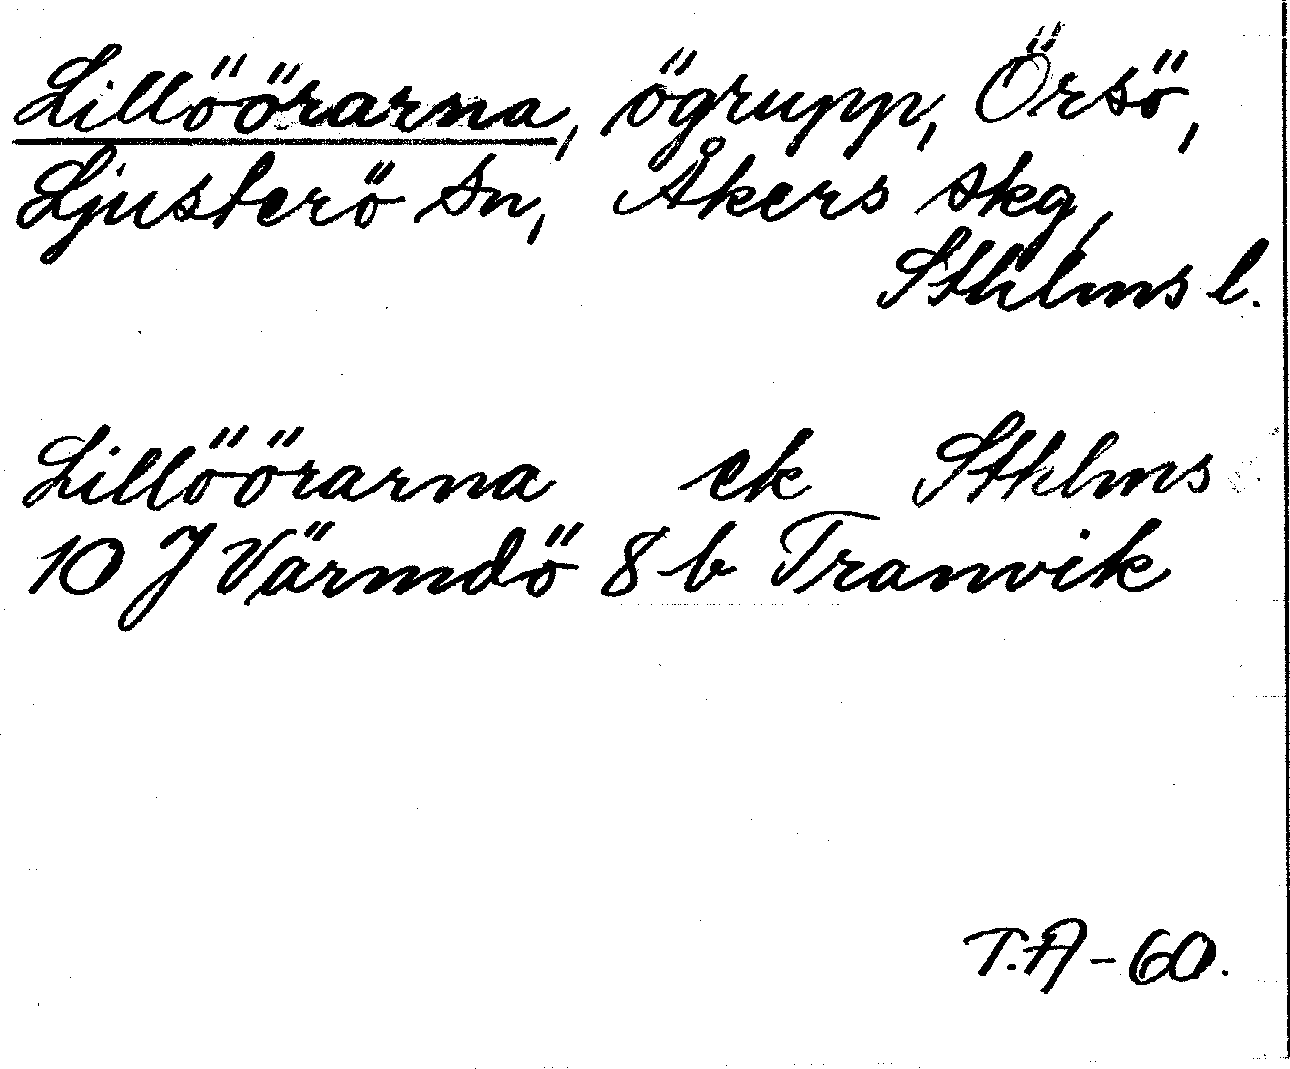 Lillöörarna, ögrupp, Örsö,
Ljusterö sn, Åkers skg,
Sthlms l.
Lillöörarna ek Sthlms
10 J Värmdö 8 b Tranvik
T.A-60.